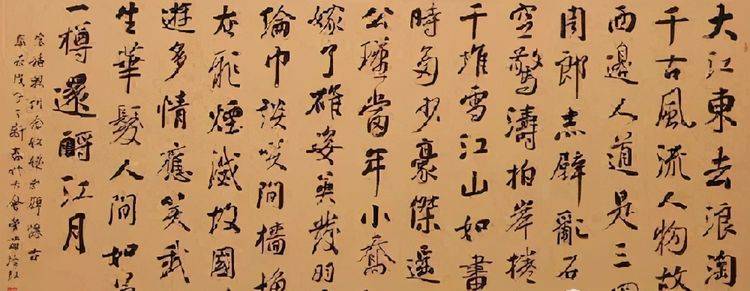 大江東去浪淘
千古風流人物故
西邊人道是三
周郎赤壁亂石
空驚濤拍岸捲
千堆雪江山如畫
時多少豪傑遥
公瑾當年小喬
嫁了雄姿英發羽
綸巾談笑間檣
灰飛煙滅故國
遊多情應笑我
生華髮人間如
一樽還酹江月